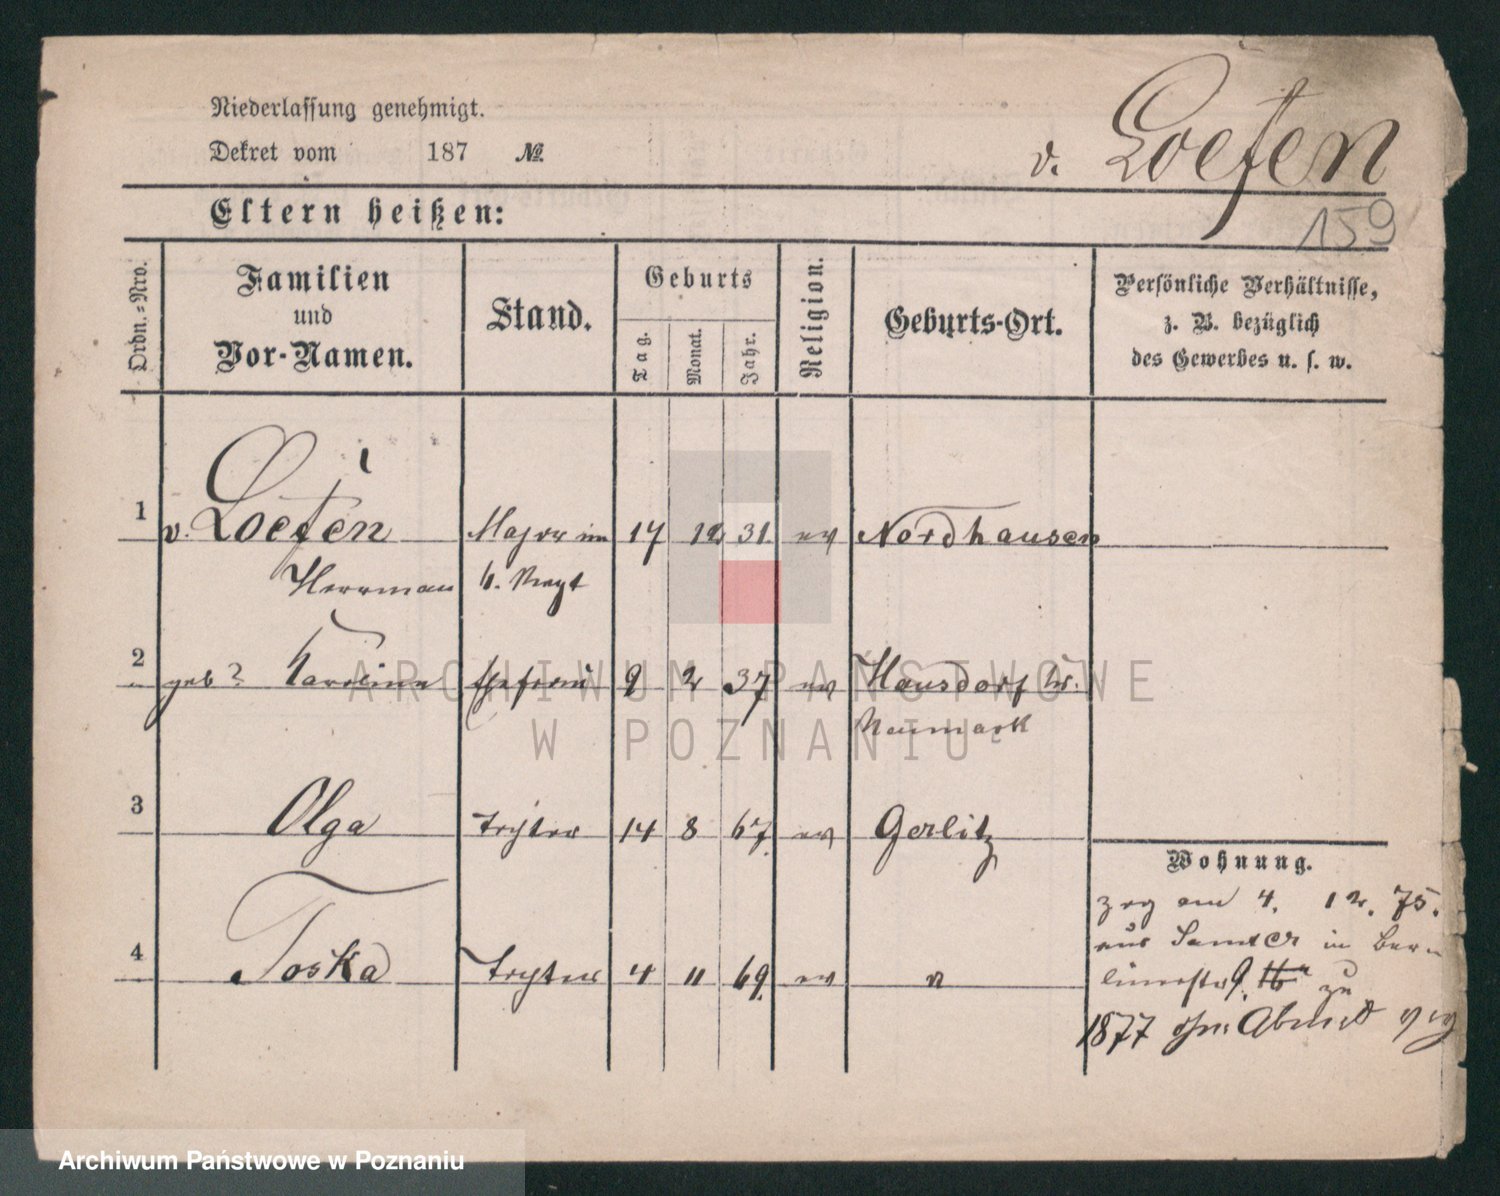 Niederlassung genehmigt.
Dekret vom 187 №
v. Loefen
159
Eltern heißen:
Ordn.-Nro.
Familien
und
Vor-Namen.
Stand.
Geburts
Tag.
Monat.
Jahr.
Religion.
Geburts-Ort.
Persönliche Verhältnisse,
z. B. bezüglich
des Gewerbes u. s. w.
1 v. Loefen Major im 17 12 31 ev Nordhausen
Herrman
2 geb? Karoline Ehefrau 9 2 37 ev Hansdorf
Neumark
3 Olga Tochter 14 8 67 ev Gerlitz
4 Toska Tochter 4 11 69 ev
Wohnung.
zog am 4. 12. 75.
aus Samter in Ber-
linerstr 9. 16a zu
1877 ohne Abmeld
ARCHIWUM PAŃSTWOWE
W POZNANIU
Archiwum Państwowe w Poznaniu